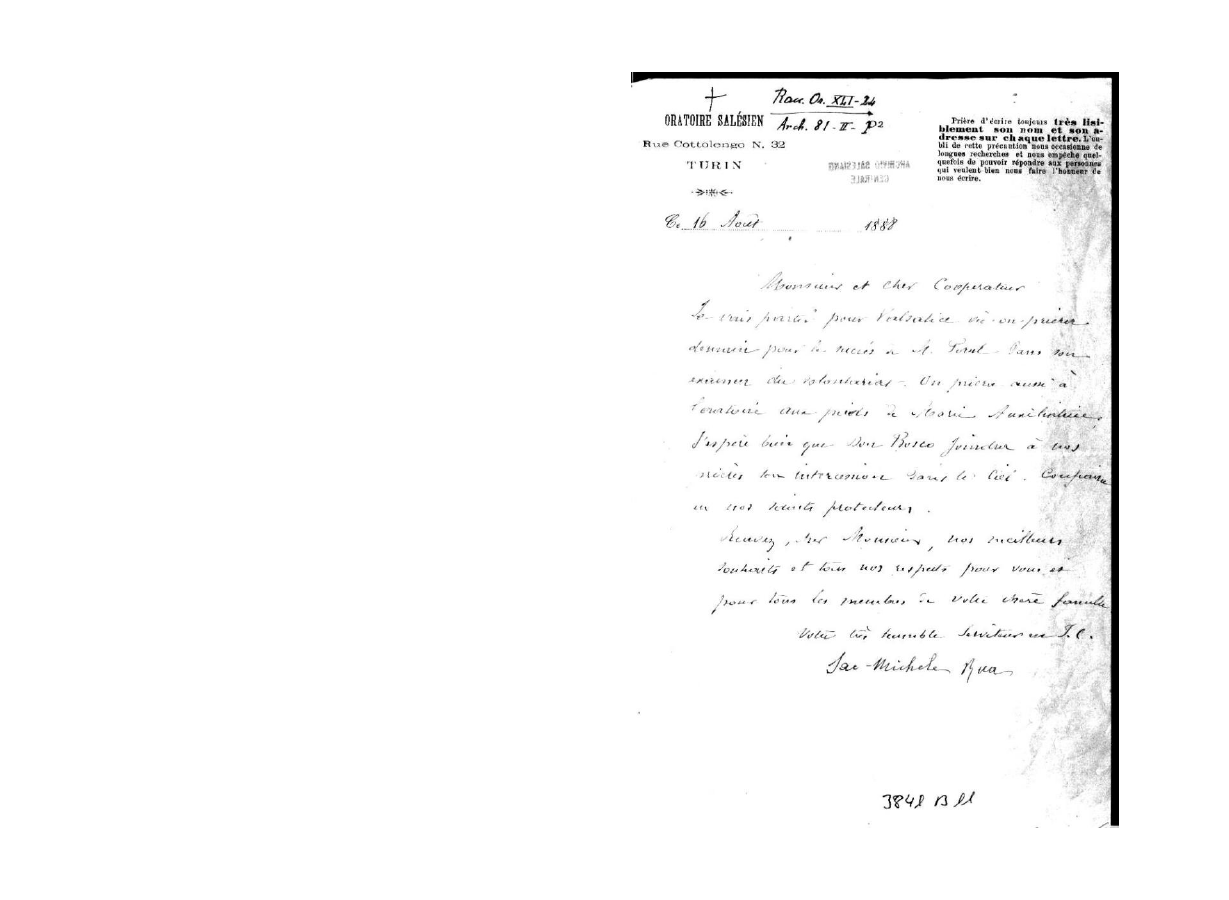 Rau. Or. XLI-24
Arch. 81-II-P2
ORATOIRE SALÉSIEN
Rue Cottolengo N. 32
TURIN
ARCHIVIO SALESIANO
CENTRALE
Prière d'écrire toujours très lisi-
blement son nom et son a-
dresse sur chaque lettre. L'ou-
bli de cette précaution nous occasionne de
longues recherches et nous empêche quel-
quefois de pouvoir répondre aux personnes
qui veulent bien nous faire l'honneur de
nous écrire.
16 Août 1888
Monsieur et cher Coopérateur
Je vais partir pour Valsalice où on priera
demain pour le succès de M. dans son
examen du volontariat. On priera aussi à
l'oratoire aux pieds de Marie Auxiliatrice,
J'espère bien que Don Bosco joindra à nos
prières son intercession dans le ciel. Confiance
en nos saints protecteurs.
Recevez, cher Monsieur, nos meilleurs
souhaits et tous nos respects pour vous et
pour tous les membres de votre chère famille
Votre très humble Serviteur en J. C.
Sac. Michele Rua